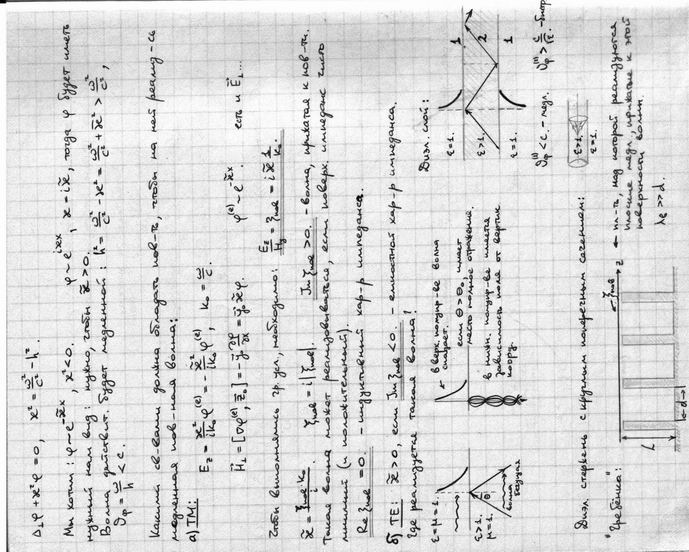 Δ⊥φ + ϰ²φ = 0, ϰ² = ω²/c² − h².
Мы хотим: φ ~ e^{−ϰ̃x}, ϰ² < 0. φ ~ e^{iϰx}, ϰ = iϰ̃, тогда φ будет иметь
нужный нам вид: нужно, чтобы ϰ̃ > 0.
Волна действит. будет медленной: h² = ω²/c² − ϰ² = ω²/c² + ϰ̃² > ω²/c²,
υф = ω/h < c.
Какими св-вами должна обладать пов-ть, чтобы на ней реализ-сь
медленная пов-ная волна:
а) TM:
E_z = ϰ²/(ik₀) φ^(e) = −ϰ̃²/(ik₀) φ^(e), k₀ = ω/c. φ^(e) ~ e^{−ϰ̃x}
H⃗⊥ = [∇φ^(e), z⃗₀] = −y⃗₀ ∂φ/∂x = y⃗₀ϰ̃φ. есть и E⃗⊥ ...
Чтобы выполнялись гр. усл., необходимо: E_z/H_y = ζпов = iϰ̃ 1/k₀.
ϰ̃ = ζпов·k₀/i ζпов = i|ζпов|. Im ζпов > 0. - волна, прижатая к пов-ти.
Такая волна может реализовываться, если поверх. импеданс чисто
мнимый (и положительный).
Re ζпов = 0. - индуктивный хар-р импеданса.
б) TE: ϰ̃ > 0, если Im ζпов < 0. - емкостной хар-р импеданса.
Где реализуется такая волна?
ε=μ=1.
ε>1.
μ=1.
θ
в верх. полупр-ве волна
спадает.
если θ > θ₀, имеет
место полное отражение.
в нижн. полупр-ве имеется
зависимость поля от вертик.
коорд.
Диэл. слой:
ε=1.
1
ε>1.
2
ε=1.
1
υф^(1) < c. - медл.
υф^(2) > c/√ε. - быстр.
Диэл. стержень с круглым поперечным сечением:
ε>1.
ε=1.
"Гребёнка":
L
d
ζпов
z
← пл-ть, над которой реализуются
плоские медл. прижатые к этой
поверхности волны.
λв >> d.